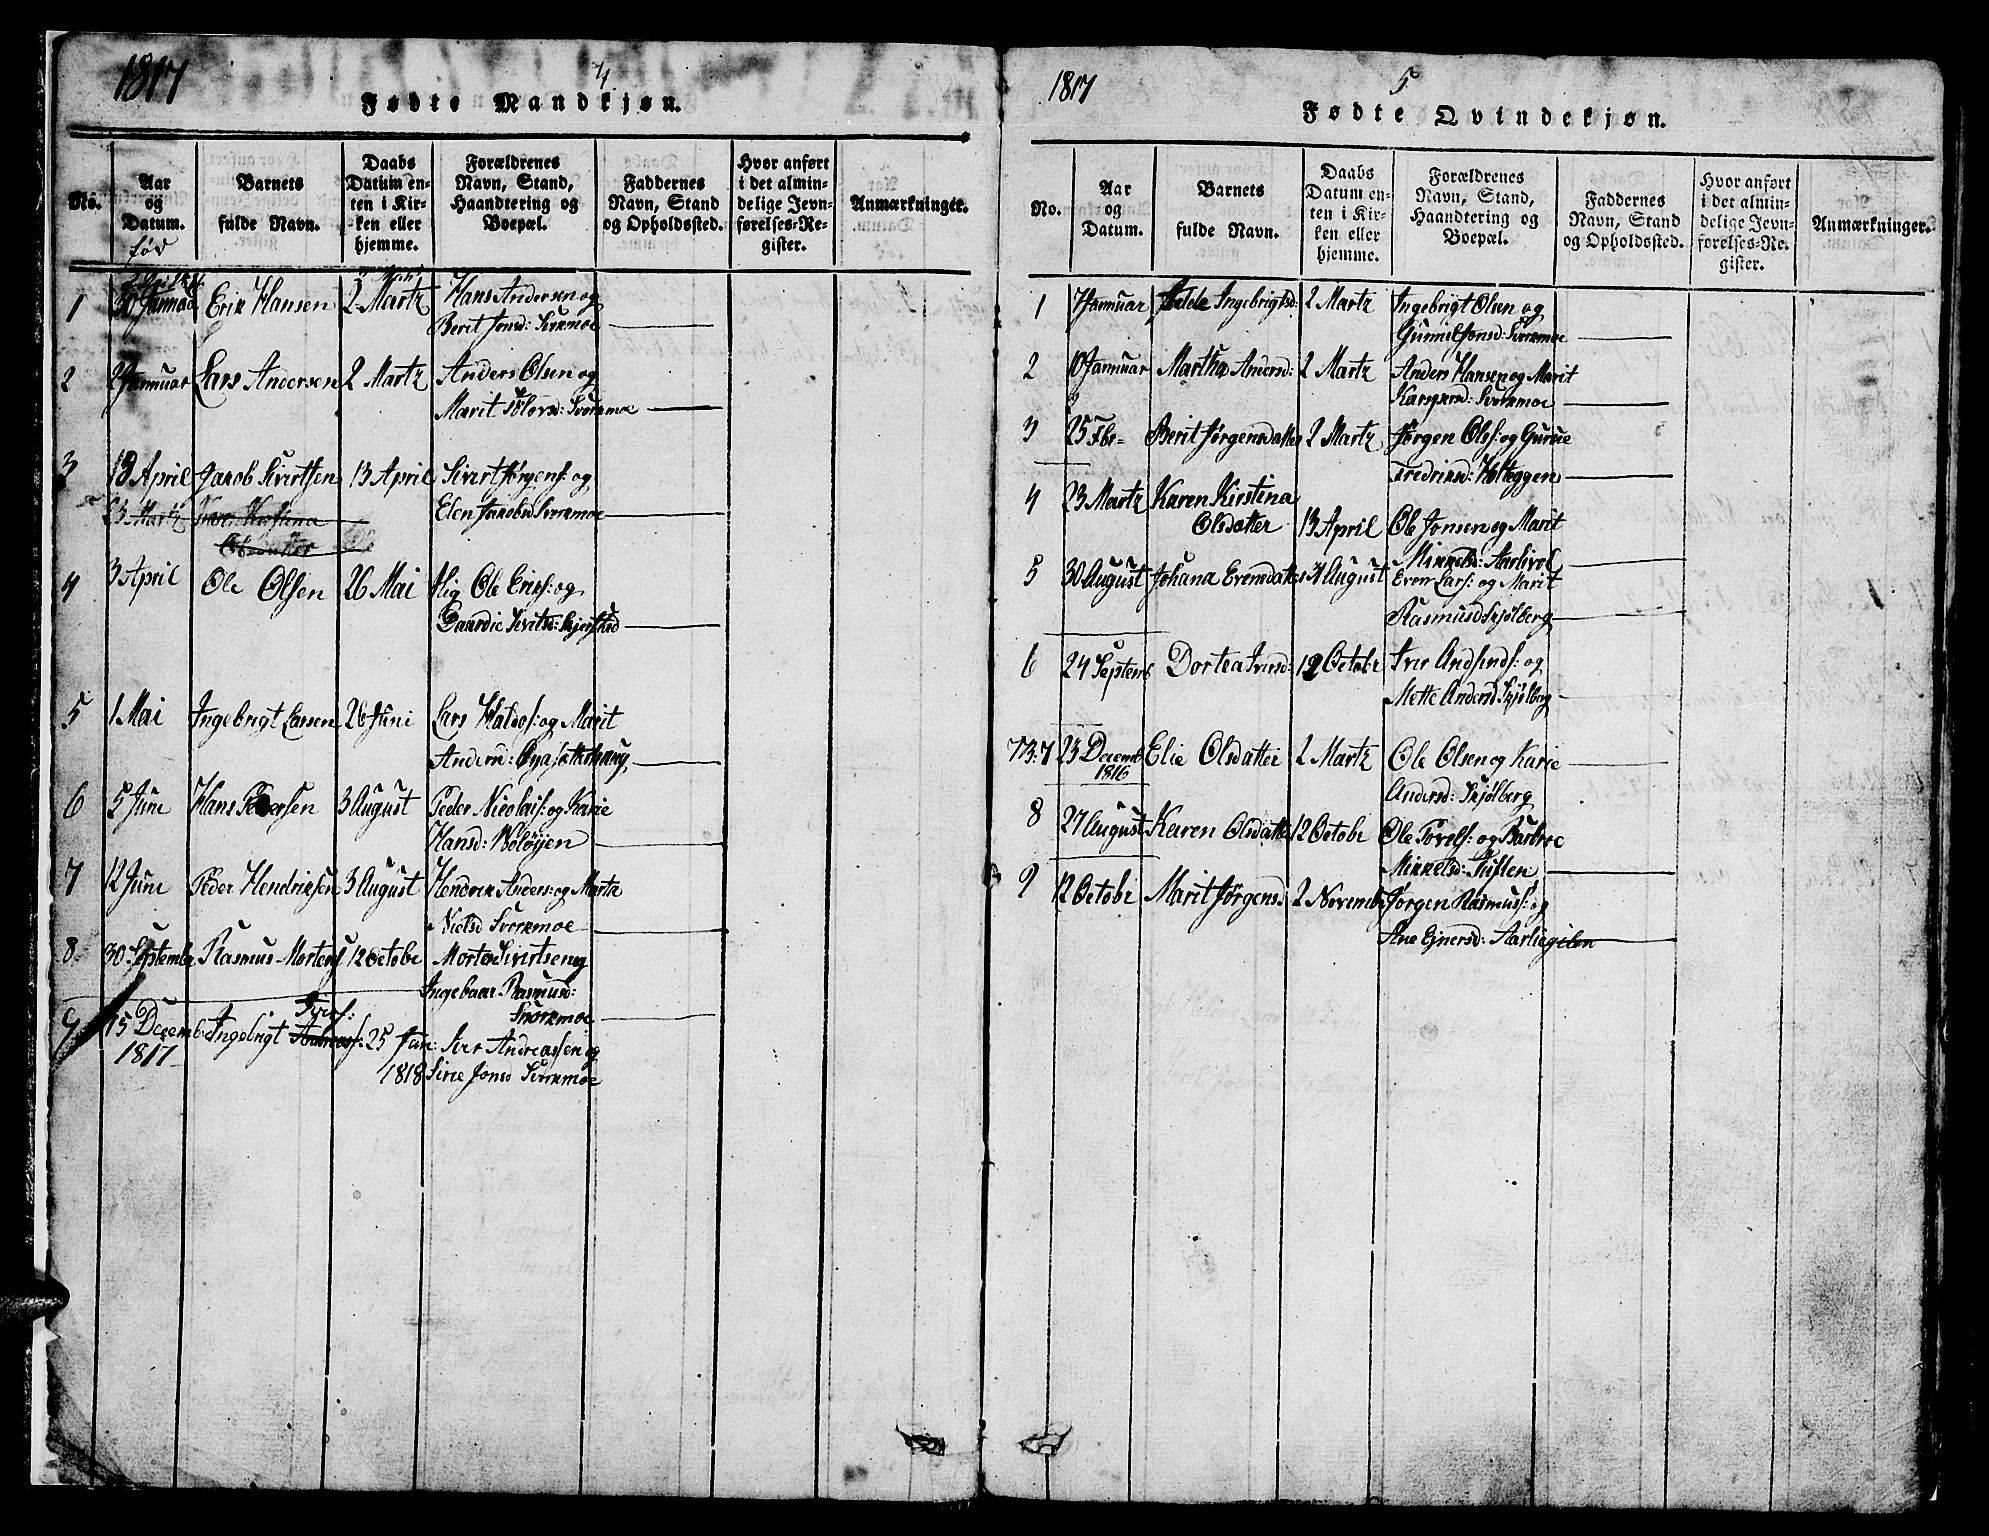 1817
4
Fødte Mandkjøn.
No.
Aar og Datum.
Barnets fulde Navn.
Daabs Datum enten i Kirken eller hjemme.
Forældrenes Navn, Stand, Haandtering og Boepæl.
Faddernes Navn, Stand og Opholdssted.
Hvor anført i det almindelige Jevnførelses-Register.
Anmærkninger.
fød
1 30 Januar Erik Hansen 2 Martz Hans Andersen og
Berit Jonsd: Svorkmoe
2 2 Januar Lars Andersen 2 Martz Anders Olsen og
Marit Svorkmoe
3 13 April Jakob Sivertsen 13 April Sivert Jørgens: og
Elen Jacobsd Svorkmoe
23 Martz Karen Kirstina
Olsdatter
4 3 April Ole Olsen 26 Mai Ole Eriks: og
5 1 Mai Ingebrigt Larsen 26 Juni Lars og Marit
Andersd:
6 5 Juni Hans Pedersen 3 August Peder Nicolais: og Karie
Hansd:
7 12 Juni Peder Hendriksen 3 August Hendrik Anders: og Marta
Nielsd Svorkmoe
8 30 Septembr Rasmus Mortens 12 Octobr Morten Sivertsen og
Ingebaar Rasmusd:
Svorkmoe
Ivers:
9 15 Decemb: Ingebrigt Andreas: 25 Jan: Iver Andreassen og
1817 1818 Sirie Jonsd Svorkmoe
1817
5
Fødte Qvindekjøn.
No.
Aar og Datum.
Barnets fulde Navn.
Daabs Datum enten i Kirken eller hjemme.
Forældrenes Navn, Stand, Haandtering og Boepæl.
Faddernes Navn, Stand og Opholdssted.
Hvor anført i det almindelige Jevnførelses-Register.
Anmærkninger.
1 7 Januar Ingebrigtsd: 2 Martz Ingebrigt Olsen og
Gunnil Jonsd: Svorkmoe
2 10 Januar Martha Andersd: 2 Martz Anders Hansen og Marit
Kaspersd: Svorkmoe
3 25 Fbr Berit Jørgensdatter 2 Martz Jørgen Ols: og Gurue
Fredriksd: Holteggen
4 23 Martz Karen Kirstina
Olsdatter 13 April Ole Jonsen og Marit
Mikkelsd: Aarlivol
5 30 August Johana Evensdatter 31 August Even Lars: og Marit
Rasmusd Skjølberg
6 24 Septemb Dortea Iversd: 12 Octobr Iver Andsends: og
Mette Andersd Skjølberg
7 23 Decemb Elie Olsdatter 2 Martz Ole Olsen og Karie
1816 Andersd: Skjølberg
8 27 August Karen Olsdatter 12 Octobr Ole Torels: og Barbroe
Mikkelsd: Stiften
9 12 Octobr Marit Jørgensd 2 Novemb Jørgen Rasmus: og
Ane Ejnersd: Aarliegilen